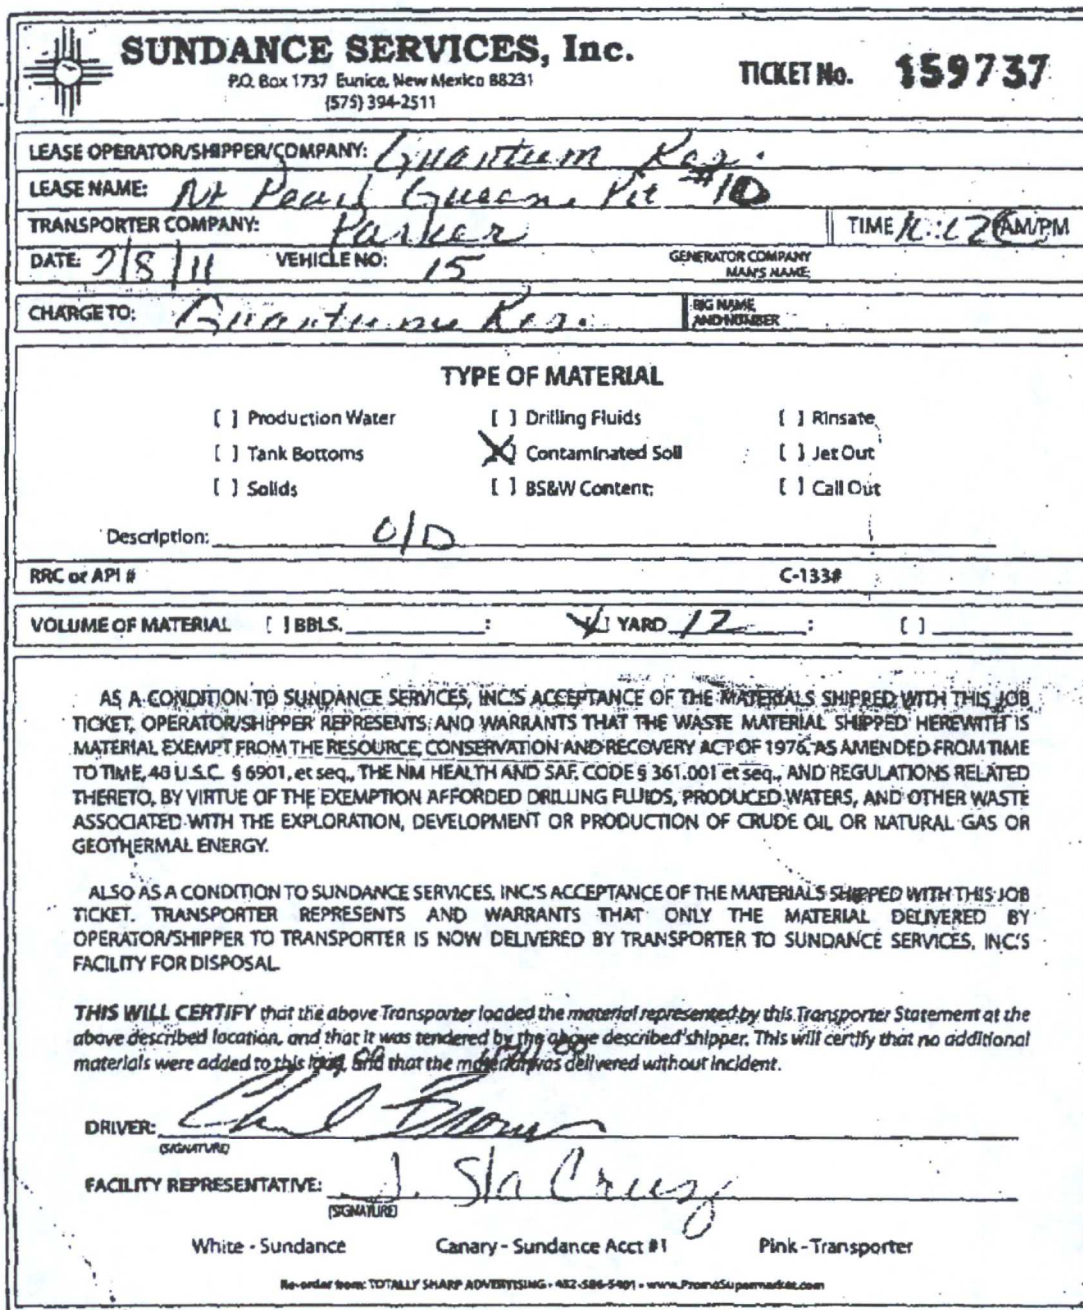 SUNDANCE SERVICES, Inc.
P.O. Box 1737 Eunice, New Mexico 88231
(575) 394-2511
TICKET No. 159737
LEASE OPERATOR/SHIPPER/COMPANY: Quantum Res.
LEASE NAME: Pearl Queen Pit #10
TRANSPORTER COMPANY: Parker TIME AM/PM
DATE: 8/11 VEHICLE NO: 15 GENERATOR COMPANY MAN'S NAME:
CHARGE TO: Quantum Res. RIG NAME AND NUMBER
TYPE OF MATERIAL
[ ] Production Water [ ] Drilling Fluids [ ] Rinsate
[ ] Tank Bottoms [X] Contaminated Soil [ ] Jet Out
[ ] Solids [ ] BS&W Content: [ ] Call Out
Description: O/D
RRC or API # C-133#
VOLUME OF MATERIAL [ ] BBLS. : [X] YARD 12 : [ ]
AS A CONDITION TO SUNDANCE SERVICES, INC'S ACCEPTANCE OF THE MATERIALS SHIPPED WITH THIS JOB
TICKET, OPERATOR/SHIPPER REPRESENTS AND WARRANTS THAT THE WASTE MATERIAL SHIPPED HEREWITH IS
MATERIAL EXEMPT FROM THE RESOURCE, CONSERVATION AND RECOVERY ACT OF 1976, AS AMENDED FROM TIME
TO TIME, 40 U.S.C. § 6901, et seq., THE NM HEALTH AND SAF. CODE § 361.001 et seq., AND REGULATIONS RELATED
THERETO, BY VIRTUE OF THE EXEMPTION AFFORDED DRILLING FLUIDS, PRODUCED WATERS, AND OTHER WASTE
ASSOCIATED WITH THE EXPLORATION, DEVELOPMENT OR PRODUCTION OF CRUDE OIL OR NATURAL GAS OR
GEOTHERMAL ENERGY.
ALSO AS A CONDITION TO SUNDANCE SERVICES, INC'S ACCEPTANCE OF THE MATERIALS SHIPPED WITH THIS JOB
TICKET. TRANSPORTER REPRESENTS AND WARRANTS THAT ONLY THE MATERIAL DELIVERED BY
OPERATOR/SHIPPER TO TRANSPORTER IS NOW DELIVERED BY TRANSPORTER TO SUNDANCE SERVICES, INC'S
FACILITY FOR DISPOSAL.
THIS WILL CERTIFY that the above Transporter loaded the material represented by this Transporter Statement at the
above described location, and that it was tendered by the above described shipper. This will certify that no additional
materials were added to this load, and that the material was delivered without incident.
DRIVER:
(SIGNATURE)
FACILITY REPRESENTATIVE: J. Sta Cruz
(SIGNATURE)
White - Sundance Canary - Sundance Acct #1 Pink - Transporter
Re-order from: TOTALLY SHARP ADVERTISING • 432-586-5401 • www.PromoSupermarket.com